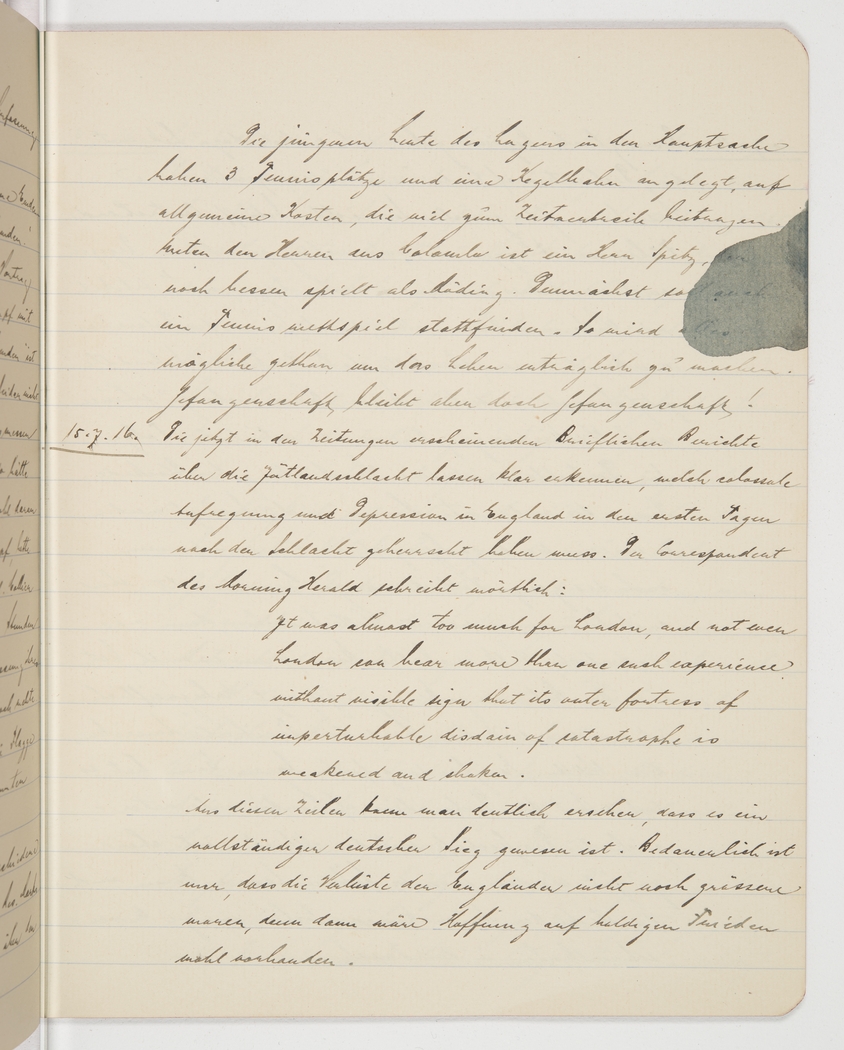 Die jüngeren Leute des Lagers in der Hauptsache
haben 3 Tennisplätze und eine Kegelbahn angelegt, auf
allgemeine Kosten, die viel zum Zeitvertreib beitragen.
Unter den Herren aus Colombo ist ein Herr Spitz, der
noch besser spielt als Möding. Demnächst soll auch
ein Tennis wettspiel stattfinden. So wird alles
mögliche gethan um das Leben erträglich zu machen.
Gefangenschaft bleibt aber doch Gefangenschaft!
15.7.16. Die jetzt in den Zeitungen erscheinenden Brieflichen Berichte
über die Jütlandschlacht lassen klar erkennen, welch colossale
Aufregung und Depression in England in den ersten Tagen
nach der Schlacht geherrscht haben muss. Der Correspondent
des Morning Herald schreibt wörtlich:
It was almost too much for London, and not even
London can bear more than one such experience
without visible sign that its outer fortress of
imperturbable disdain of catastrophe is
weakened and shaken.
Aus diesen Zeilen kann man deutlich ersehen, dass es ein
vollständiger deutscher Sieg gewesen ist. Bedauerlich ist
nur, dass die Verluste der Engländer nicht noch grössere
waren, denn dann wäre Hoffnung auf baldigen Frieden
wohl vorhanden.